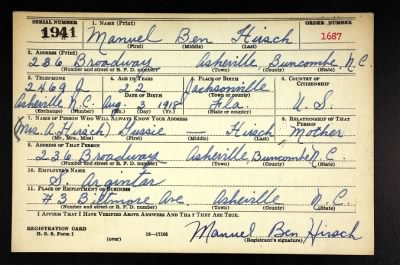 SERIAL NUMBER 1. NAME (Print) ORDER NUMBER
1941 Manuel Ben Hirsch 1687
(First) (Middle) (Last)
2. ADDRESS (Print)
236 Broadway Asheville, Buncombe, N.C.
(Number and street or R. F. D. number) (Town) (County) (State)
3. TELEPHONE 4. AGE IN YEARS 5. PLACE OF BIRTH 6. COUNTRY OF CITIZENSHIP
2469 J 22 Jacksonville
DATE OF BIRTH (Town or county)
Asheville N.C. Aug. 1918 Fla. U. S.
7. NAME OF PERSON WHO WILL ALWAYS KNOW YOUR ADDRESS 8. RELATIONSHIP OF THAT PERSON
(Mrs. A. Hirsch) Gussie — Hirsch Mother
(Mr., Mrs., Miss) (First) (Middle) (Last)
9. ADDRESS OF THAT PERSON
236 Broadway Asheville, Buncombe N.C.
(Number and street or R. F. D. number) (Town) (County) (State)
10. EMPLOYER'S NAME
S. Argintar
11. PLACE OF EMPLOYMENT OR BUSINESS
#3 Biltmore Ave. Asheville N.C.
(Number and street or R. F. D. number) (Town) (County) (State)
I AFFIRM THAT I HAVE VERIFIED ABOVE ANSWERS AND THAT THEY ARE TRUE.
REGISTRATION CARD
D. S. S. Form 1 (over) 16—17105 Manuel Ben Hirsch
(Registrant's signature)